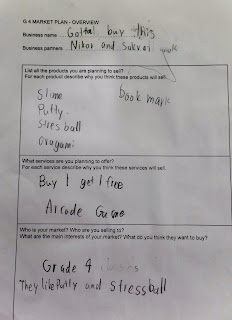 G 4 MARKET PLAN - OVERVIEW
Business name Gottal buy this
Business partners Nihar and
List all the products you are planning to sell?
For each product describe why you think these products will sell.
Slime
book mark
Putty
Stres ball
Oragami
What services are you planning to offer?
For each service describe why you think these services will sell.
Buy 1 get 1 free
Arcade Game
Who is your market? Who are you selling to?
What are the main interests of your market? What do you think they want to buy?
Grade 4
They like Putty and stressball